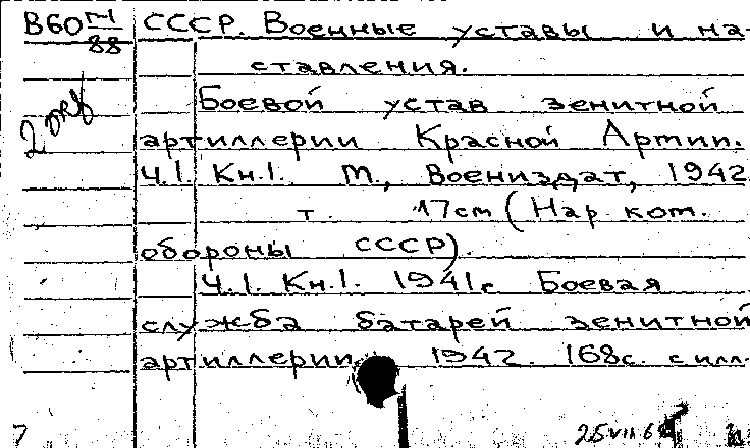 В60 88 СССР. Военные уставы и на-
ставления.
Боевой устав зенитной
2 экз
артиллерии Красной Армии.
Ч.1. Кн.1. М., Воениздат, 1942
т. 17см (Нар. ком.
обороны СССР).
Ч.1. Кн.1. 1941г Боевая
служба батарей зенитной
артиллерии 1942. 168с. с илл.
7 25 VII 6